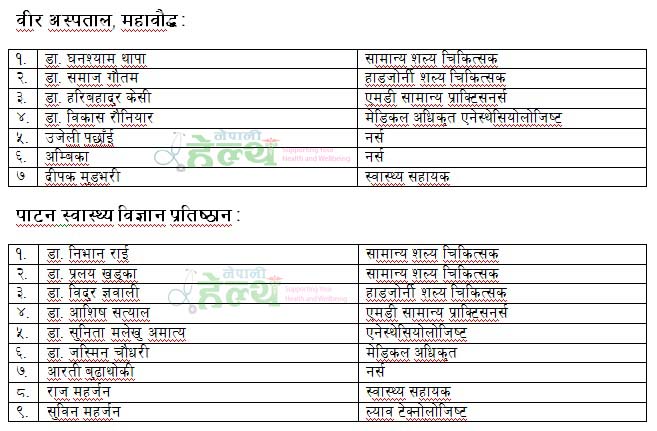 वीर अस्पताल, महावौद्ध :
१. डा. घनश्याम थापा सामान्य शल्य चिकित्सक
२. डा. समाज गौतम हाडजोर्नी शल्य चिकित्सक
३. डा. हरिबहादुर केसी एमडी सामान्य प्राक्टिसनर्स
४. डा. विकास रौनियार मेडिकल अधिकृत एनेस्थेसियोलोजिष्ट
५. उजेली पछाँई नर्स
६. अम्बिका नर्स
७ दीपक मुडभरी स्वास्थ्य सहायक
नेपाली
हेल्थ
Supporting Your
Health and Wellbeing
पाटन स्वास्थ्य विज्ञान प्रतिष्ठान :
१. डा. निभान राई सामान्य शल्य चिकित्सक
२. डा. प्रलय खड्का सामान्य शल्य चिकित्सक
३. डा. विदुर ज्ञवाली हाडजोर्नी शल्य चिकित्सक
४. डा. आशिष सत्याल एमडी सामान्य प्राक्टिसनर्स
५. डा. सुनिता मलेखु अमात्य एनेस्थेसियोलोजिष्ट
६. डा. जस्मिन चौधरी मेडिकल अधिकृत
७. आरती बुढाथोकी नर्स
८. राज महर्जन स्वास्थ्य सहायक
९. सुविन महर्जन ल्याव टेक्नोलोजिष्ट
नेपाली
हेल्थ
Supporting Your
Health and Wellbeing